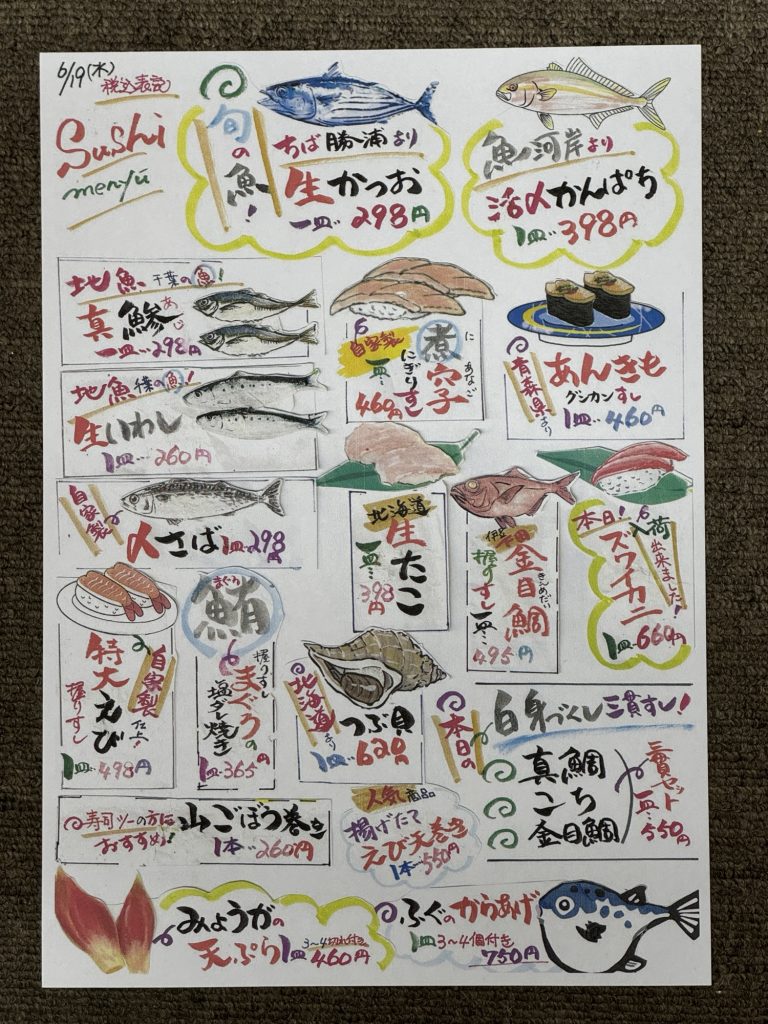 6/19(木)
税込表記
Sushi
menyū
旬の魚!
ちば勝浦より
生かつお
一皿‥298円
魚河岸より
活〆かんぱち
1皿‥398円
地魚 千葉の魚!
真鯵
あじ
一皿‥298円
地魚 千葉の魚!
生いわし
1皿‥260円
自家製
〆さば1皿‥298円
自家製
煮穴子
に あなご
にぎりすし
一皿‥460円
青森県より
あんきも
グンカンすし
1皿‥460円
北海道
生たこ
一皿‥398円
伊豆下田
金目鯛
きんめだい
握りすし一皿‥495円
本日!入荷出来ました!
ズワイカニ
1皿‥660円
自家製仕上!
特大えび
握りすし
1皿‥498円
鮪
まぐろ
握りすし
まぐろの
塩ダレ焼き
1皿‥365円
北海道より
つぶ貝
1皿‥620円
本日の
白身づくし三貫すし!
真鯛
こち
金目鯛
三貫セット
一皿‥550円
寿司ツーの方に
おすすめ!
山ごぼう巻き
1本‥260円
人気商品
揚げたて
えび天巻き
1本‥550円
みょうがの
天ぷら
3〜4切れ付き
1皿‥460円
ふぐのからあげ
1皿3〜4個付き
750円